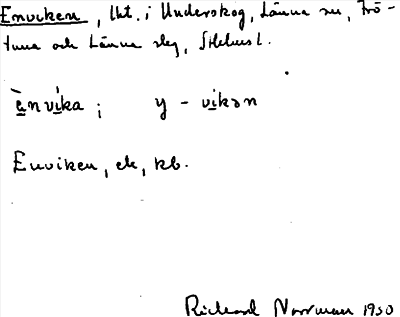 Enviken, lht. i Underskog, Länna sn, Frö-
tuna och Länna slg, Sthlms l.
ànvika; y - vikən
Enviken, ek, kb.
Rickard Norrman 1930